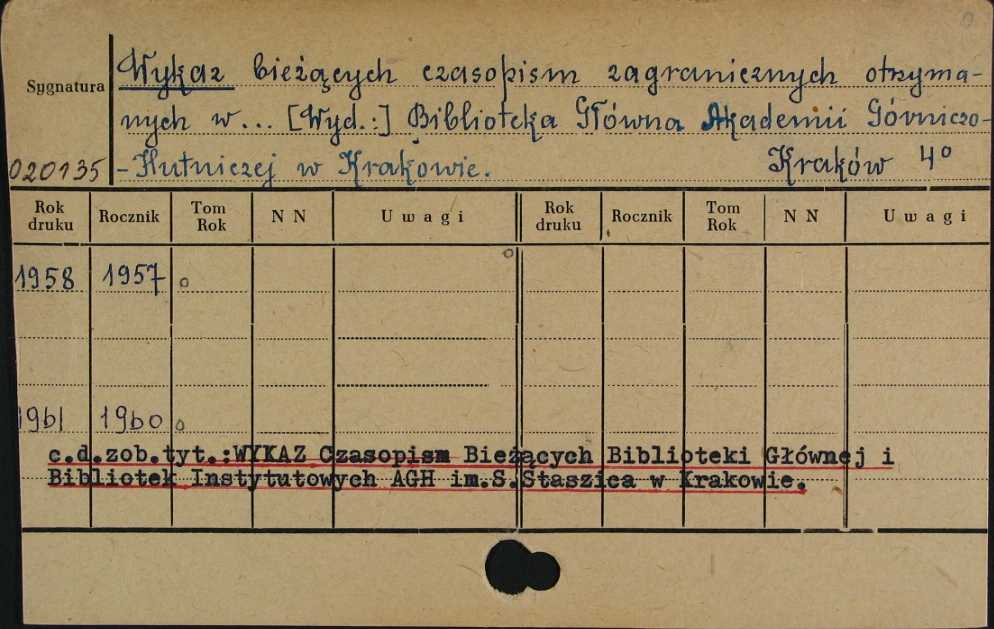 Sygnatura
Wykaz bieżących czasopism zagranicznych otrzyma-
nych w... [Wyd.:] Biblioteka Główna Akademii Górniczo-
-Hutniczej w Krakowie. Kraków 4°
020135
Rok druku Rocznik Tom Rok N N Uwagi Rok druku Rocznik Tom Rok N N Uwagi
1958 1957
1961 1960
c.d.zob.tyt.:WYKAZ Czasopism Bieżących Biblioteki Głównej i
Bibliotek Instytutowych AGH im.S.Staszica w Krakowie.